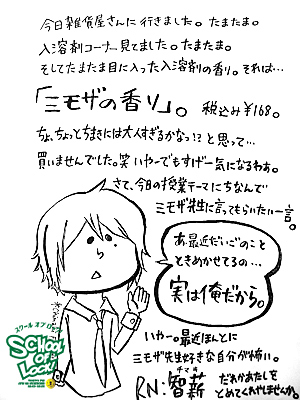 今日雑貨屋さんに行きました。たまたま。
入溶剤コーナー見てました。たまたま。
そしてたまたま目に入った入溶剤の香り。それは…
「ミモザの香り」。 税込み¥168。
ちょ、ちょっとちまきには大人すぎるかなっ!?と思って…
買いませんでした。笑 いやーでもすげー気になるわぁ。
さて、今日の授業テーマにちなんで
ミモザ先生に言ってもらいたい一言。
あ、最近だいごのこと
ときめかせてるの…
実は俺だから。
いやー。最近ほんとに
ミモザ先生好きな自分が怖い。
RN:智薪
だれかあたしを
とめてくれやしませんか。
スクール オブ ロック!
SCHOOL
OF
LOCK!